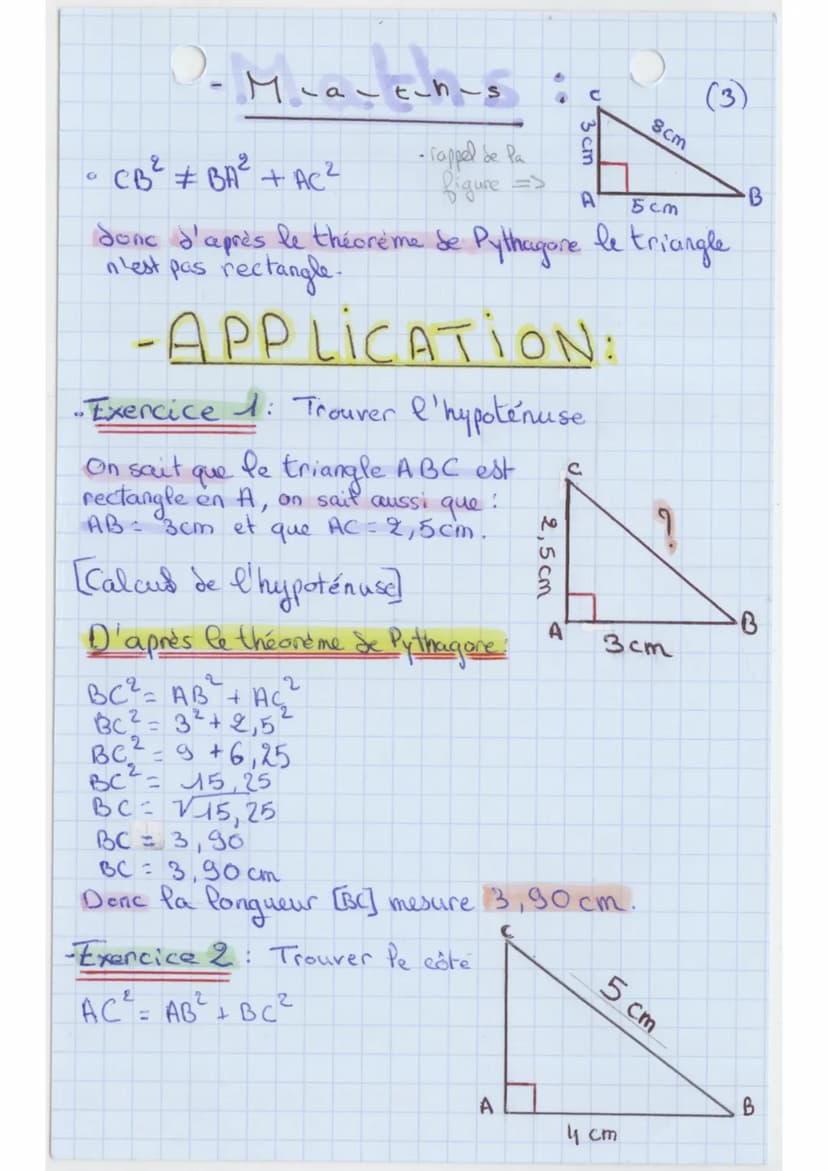 - M-a-t-h-s :
(3)
C
3 cm
8 cm
A
5 cm
B
• CB² ≠ BA² + AC²
• rappel de la
figure =>
donc d'après le théorème de Pythagore le triangle
n'est pas rectangle.
- APPLiCATiON:
Exercice 1 : Trouver l'hypoténuse
On sait que le triangle ABC est
rectangle en A, on sait aussi que :
AB = 3cm et que AC = 2,5cm.
C
?
2,5 cm
A
3 cm
B
[Calcul de l'hypoténuse]
D'après le théorème de Pythagore:
BC² = AB² + AC²
BC² = 3² + 2,5²
BC² = 9 + 6,25
BC² = 15,25
BC = √15,25
BC = 3,90
BC = 3,90 cm
Donc la longueur [BC] mesure 3,90 cm.
- Exercice 2 : Trouver le côté
AC² = AB² + BC²
C
5 cm
A
4 cm
B